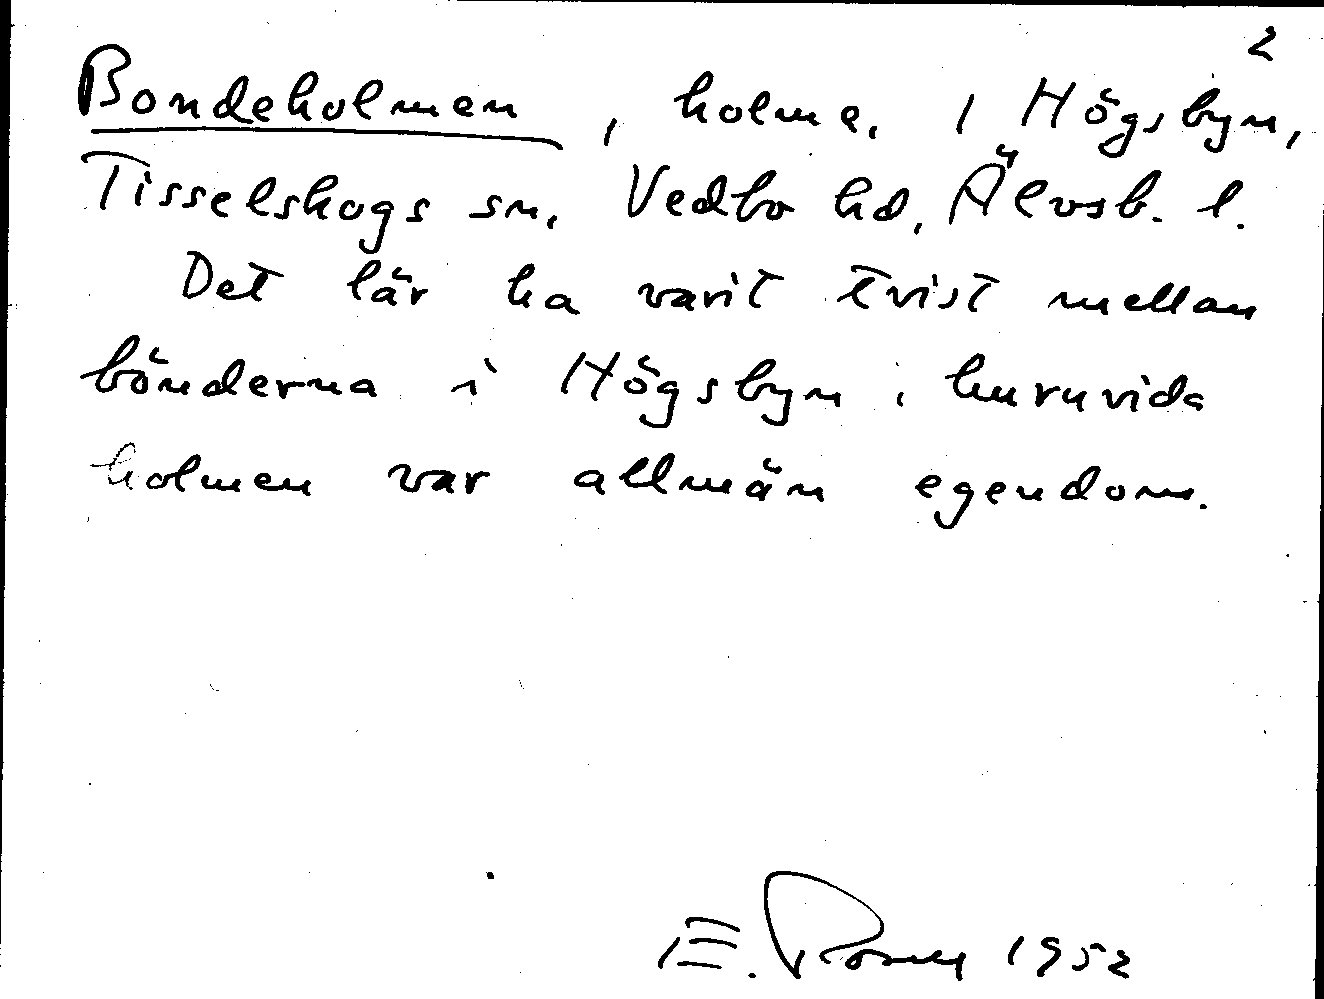 2
Bondeholmen, holme. I Högsbyn,
Tisselskogs sn, Vedbo hd, Älvsb. l.
Det lär ha varit tvist mellan
bönderna i Högsbyn, huruvida
holmen var allmän egendom.
E. 1952